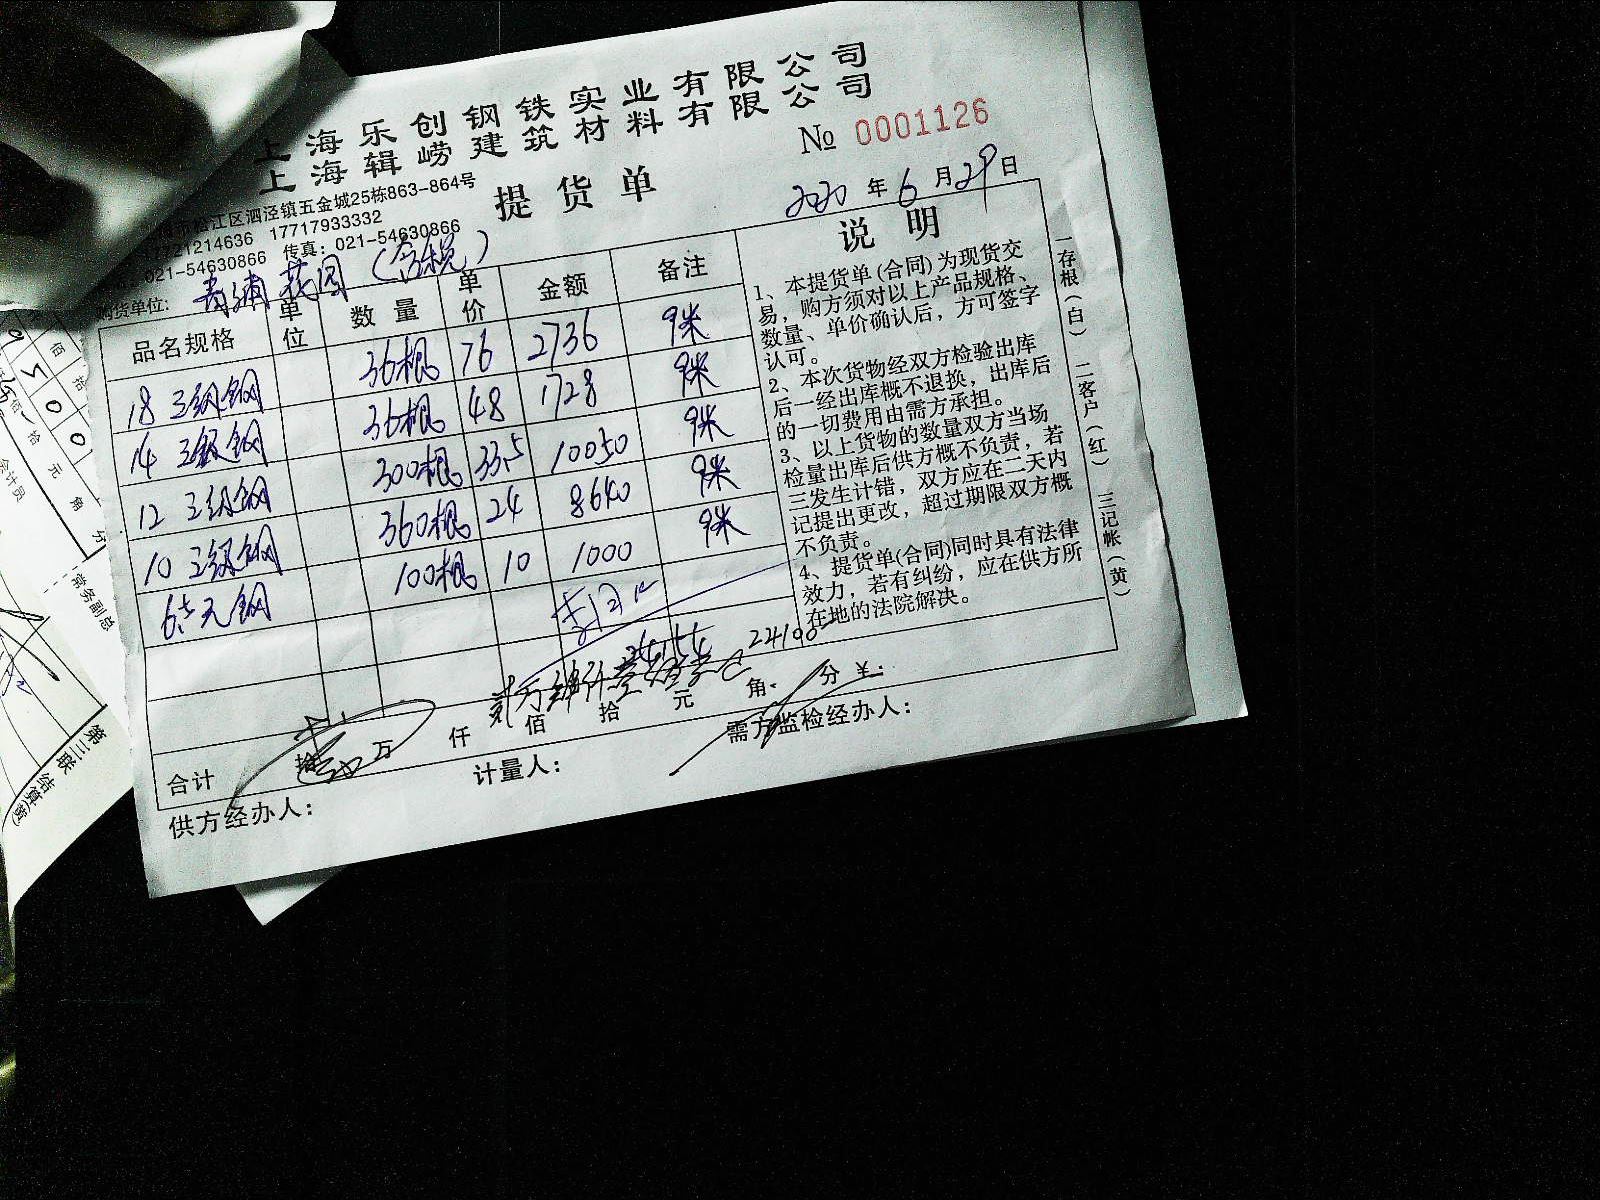 上海乐创钢铁实业有限公司
上海辑崂建筑材料有限公司
No 0001126
提货单
松江区泗泾镇五金城25栋863-864号
17721214636 17717933332
021-54630866 传真：021-54630866
2020 年 6 月 29 日
购货单位： 青浦花园（含税）
品名规格 单位 数量 单价 金额 备注
18 三级钢 36根 76 2736 9米
14 三级钢 36根 48 1728 9米
12 三级钢 300根 33.5 10050 9米
10 三级钢 360根 24 8640 9米
6.5 元钢 100根 10 1000 9米
合计 拾 万 仟 佰 拾 元 角 分 ¥：
贰万肆仟壹 24190
供方经办人： 计量人： 需方监检经办人：
说明
1、本提货单(合同)为现货交
易，购方须对以上产品规格、
数量、单价确认后，方可签字
认可。
2、本次货物经双方检验出库
后一经出库概不退换，出库后
的一切费用由需方承担。
3、以上货物的数量双方当场
检量出库后供方概不负责，若
三发生计错，双方应在二天内
记提出更改，超过期限双方概
不负责。
4、提货单(合同)同时具有法律
效力，若有纠纷，应在供方所
在地的法院解决。
一存根(白) 二客户(红) 三记帐(黄)
佰 拾 元 角 分
会计员
常务副总
第三联 结算(黄)